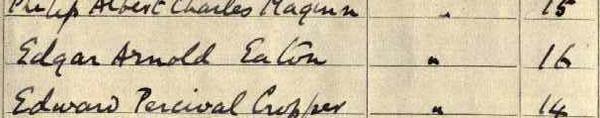 Philip Albert Charles Maginn " 15
Edgar Arnold Eaton " 16
Edward Percival Cropper " 14